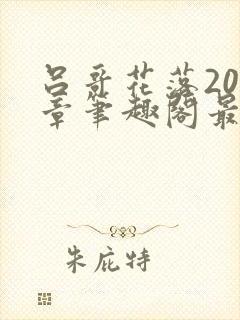 吕哥花落20
章笔趣阁最
朱庇特